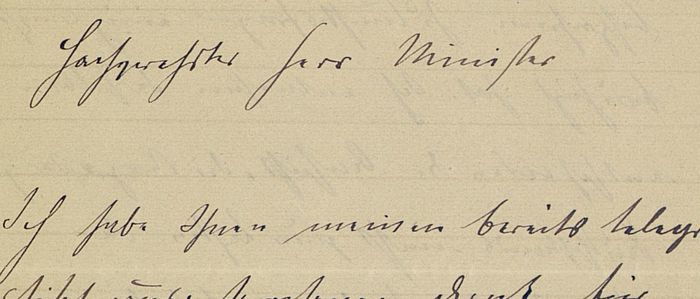 Hochgeehrter Herr Minister
Ich habe Ihnen meinen bereits telegr
für